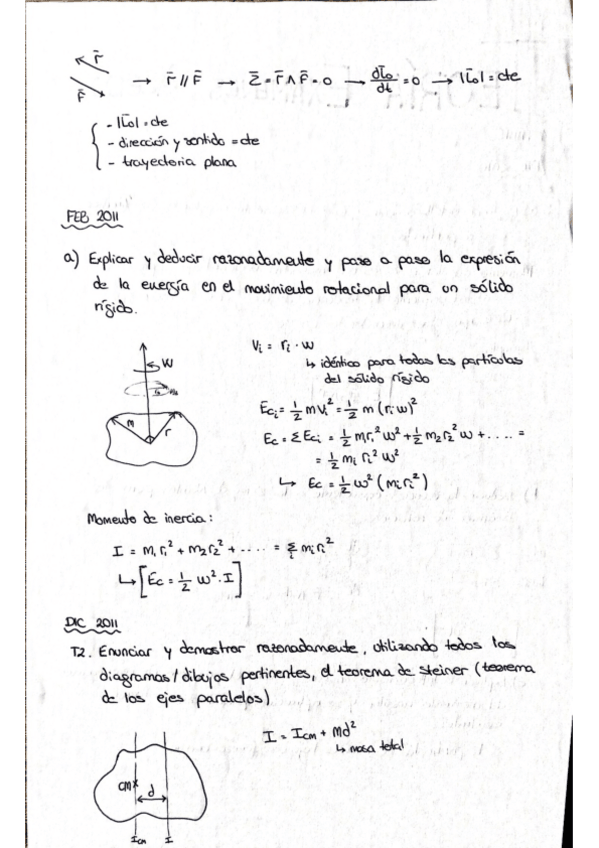 r̄
F̄
→ r̄ // F̄ → Z̄ = r̄ ∧ F̄ = 0 → dL̄o/dt = 0 → |L̄o| = cte
- |L̄o| = cte
- dirección y sentido = cte
- trayectoria plana
FEB 2011
a) Explicar y deducir razonadamente y paso a paso la expresión
de la energía en el movimiento rotacional para un sólido
rígido.
Vi = ri · w
↳ idéntico para todas las partículas
del sólido rígido
w
m
r
Eci = 1/2 mVi² = 1/2 m (ri w)²
Ec = Σ Eci = 1/2 m₁r₁² w² + 1/2 m₂ r₂² w + .... =
= 1/2 mi ri² w²
↳ Ec = 1/2 w² (mi ri²)
Momento de inercia:
I = m₁ r₁² + m₂ r₂² + .... = Σi mi ri²
↳ [Ec = 1/2 w² · I]
DIC 2011
T2. Enunciar y demostrar razonadamente, utilizando todos los
diagramas/dibujos pertinentes, el teorema de Steiner (teorema
de los ejes paralelos)
I = Icm + Md²
↳ masa total
CM x
d
Icm I